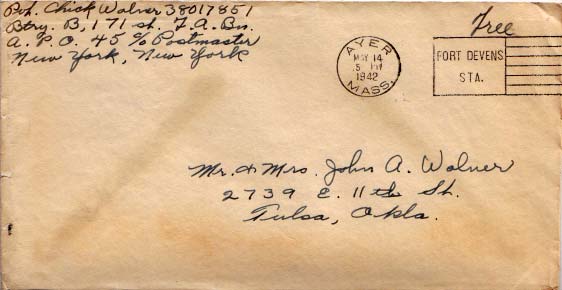 Pvt. Chick Wolner 38017851
Btry. B, 171 st. F. A. Bn.
A. P. O. 45 % Postmaster
New York, New York
Free
AYER
MAY 14
5 PM
1942
MASS.
FORT DEVENS
STA.
Mr. & Mrs. John A. Wolner
2739 E. 11th St.
Tulsa, Okla.